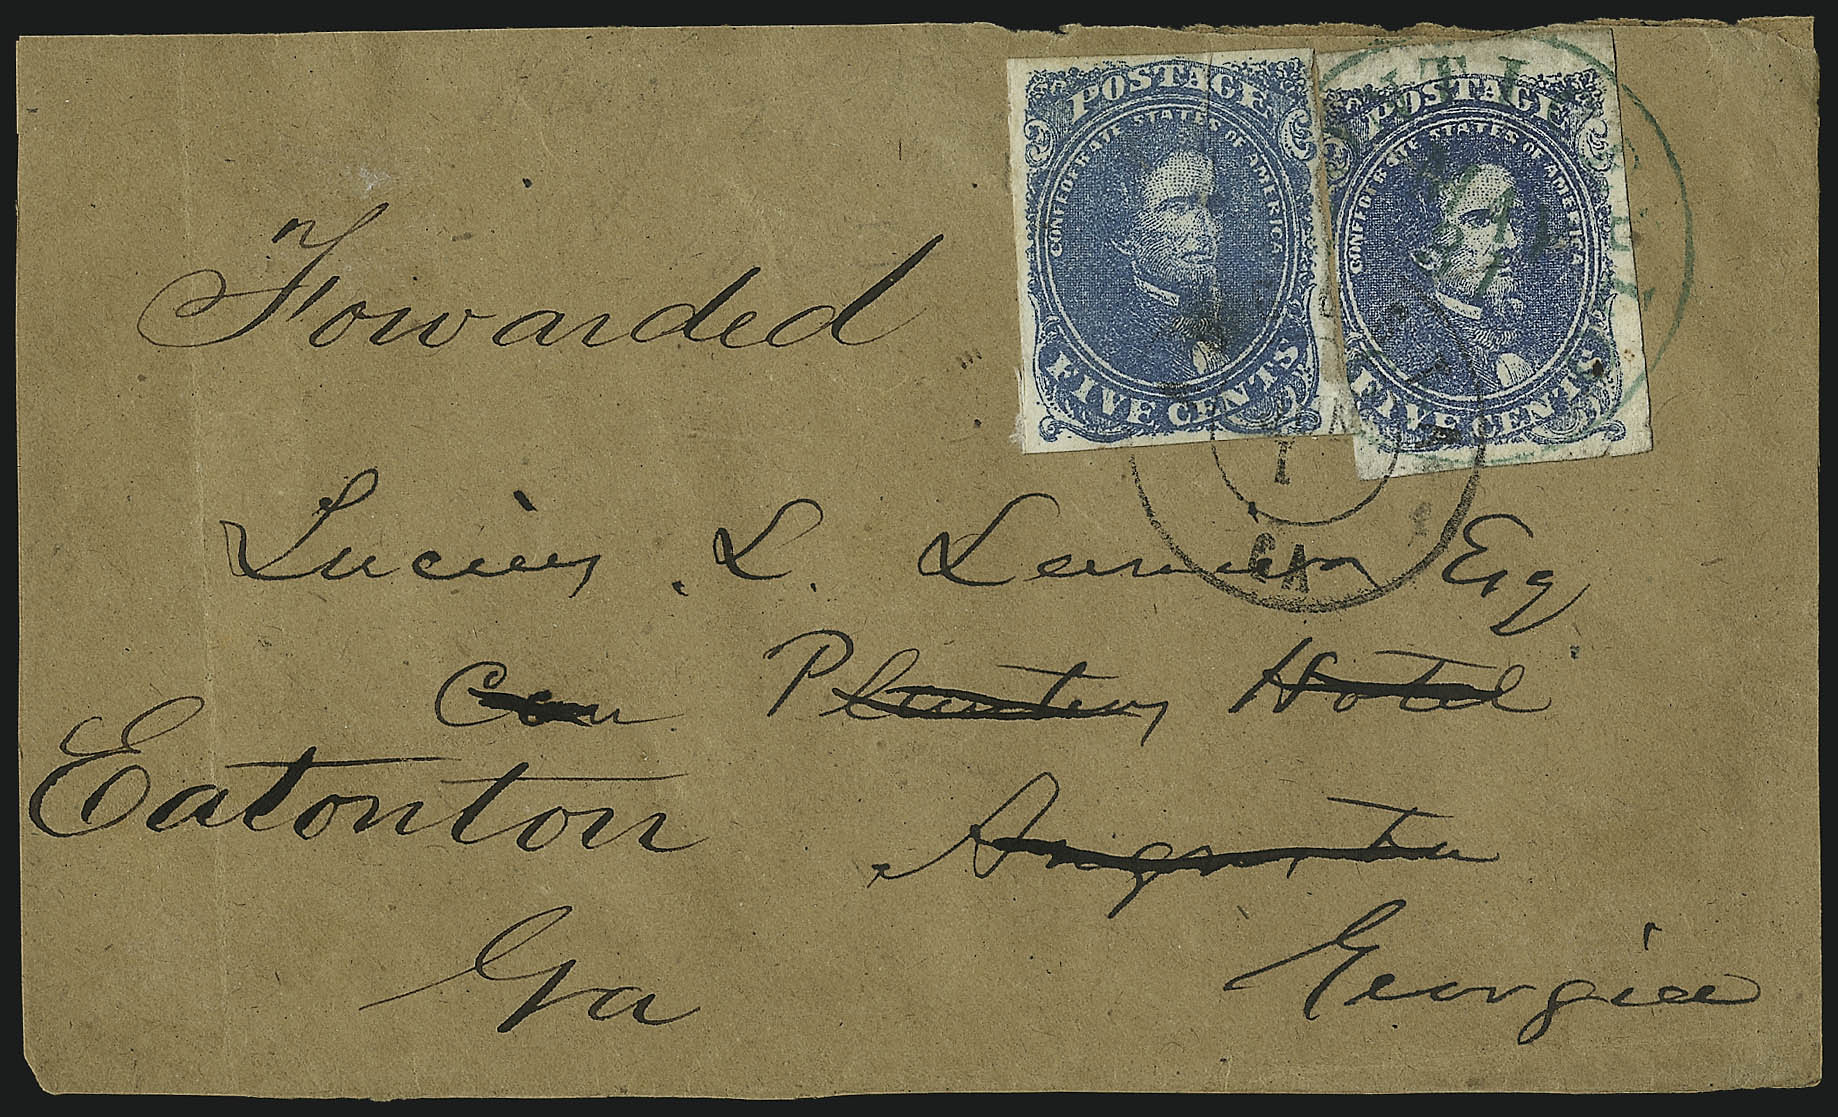 POSTAGE
CONFEDERATE STATES OF AMERICA
FIVE CENTS
POSTAGE
CONFEDERATE STATES OF AMERICA
FIVE CENTS
1
GA
Forwarded
Lucius L. Esq
Planters Hotel
Eatonton Augusta
Ga Georgia